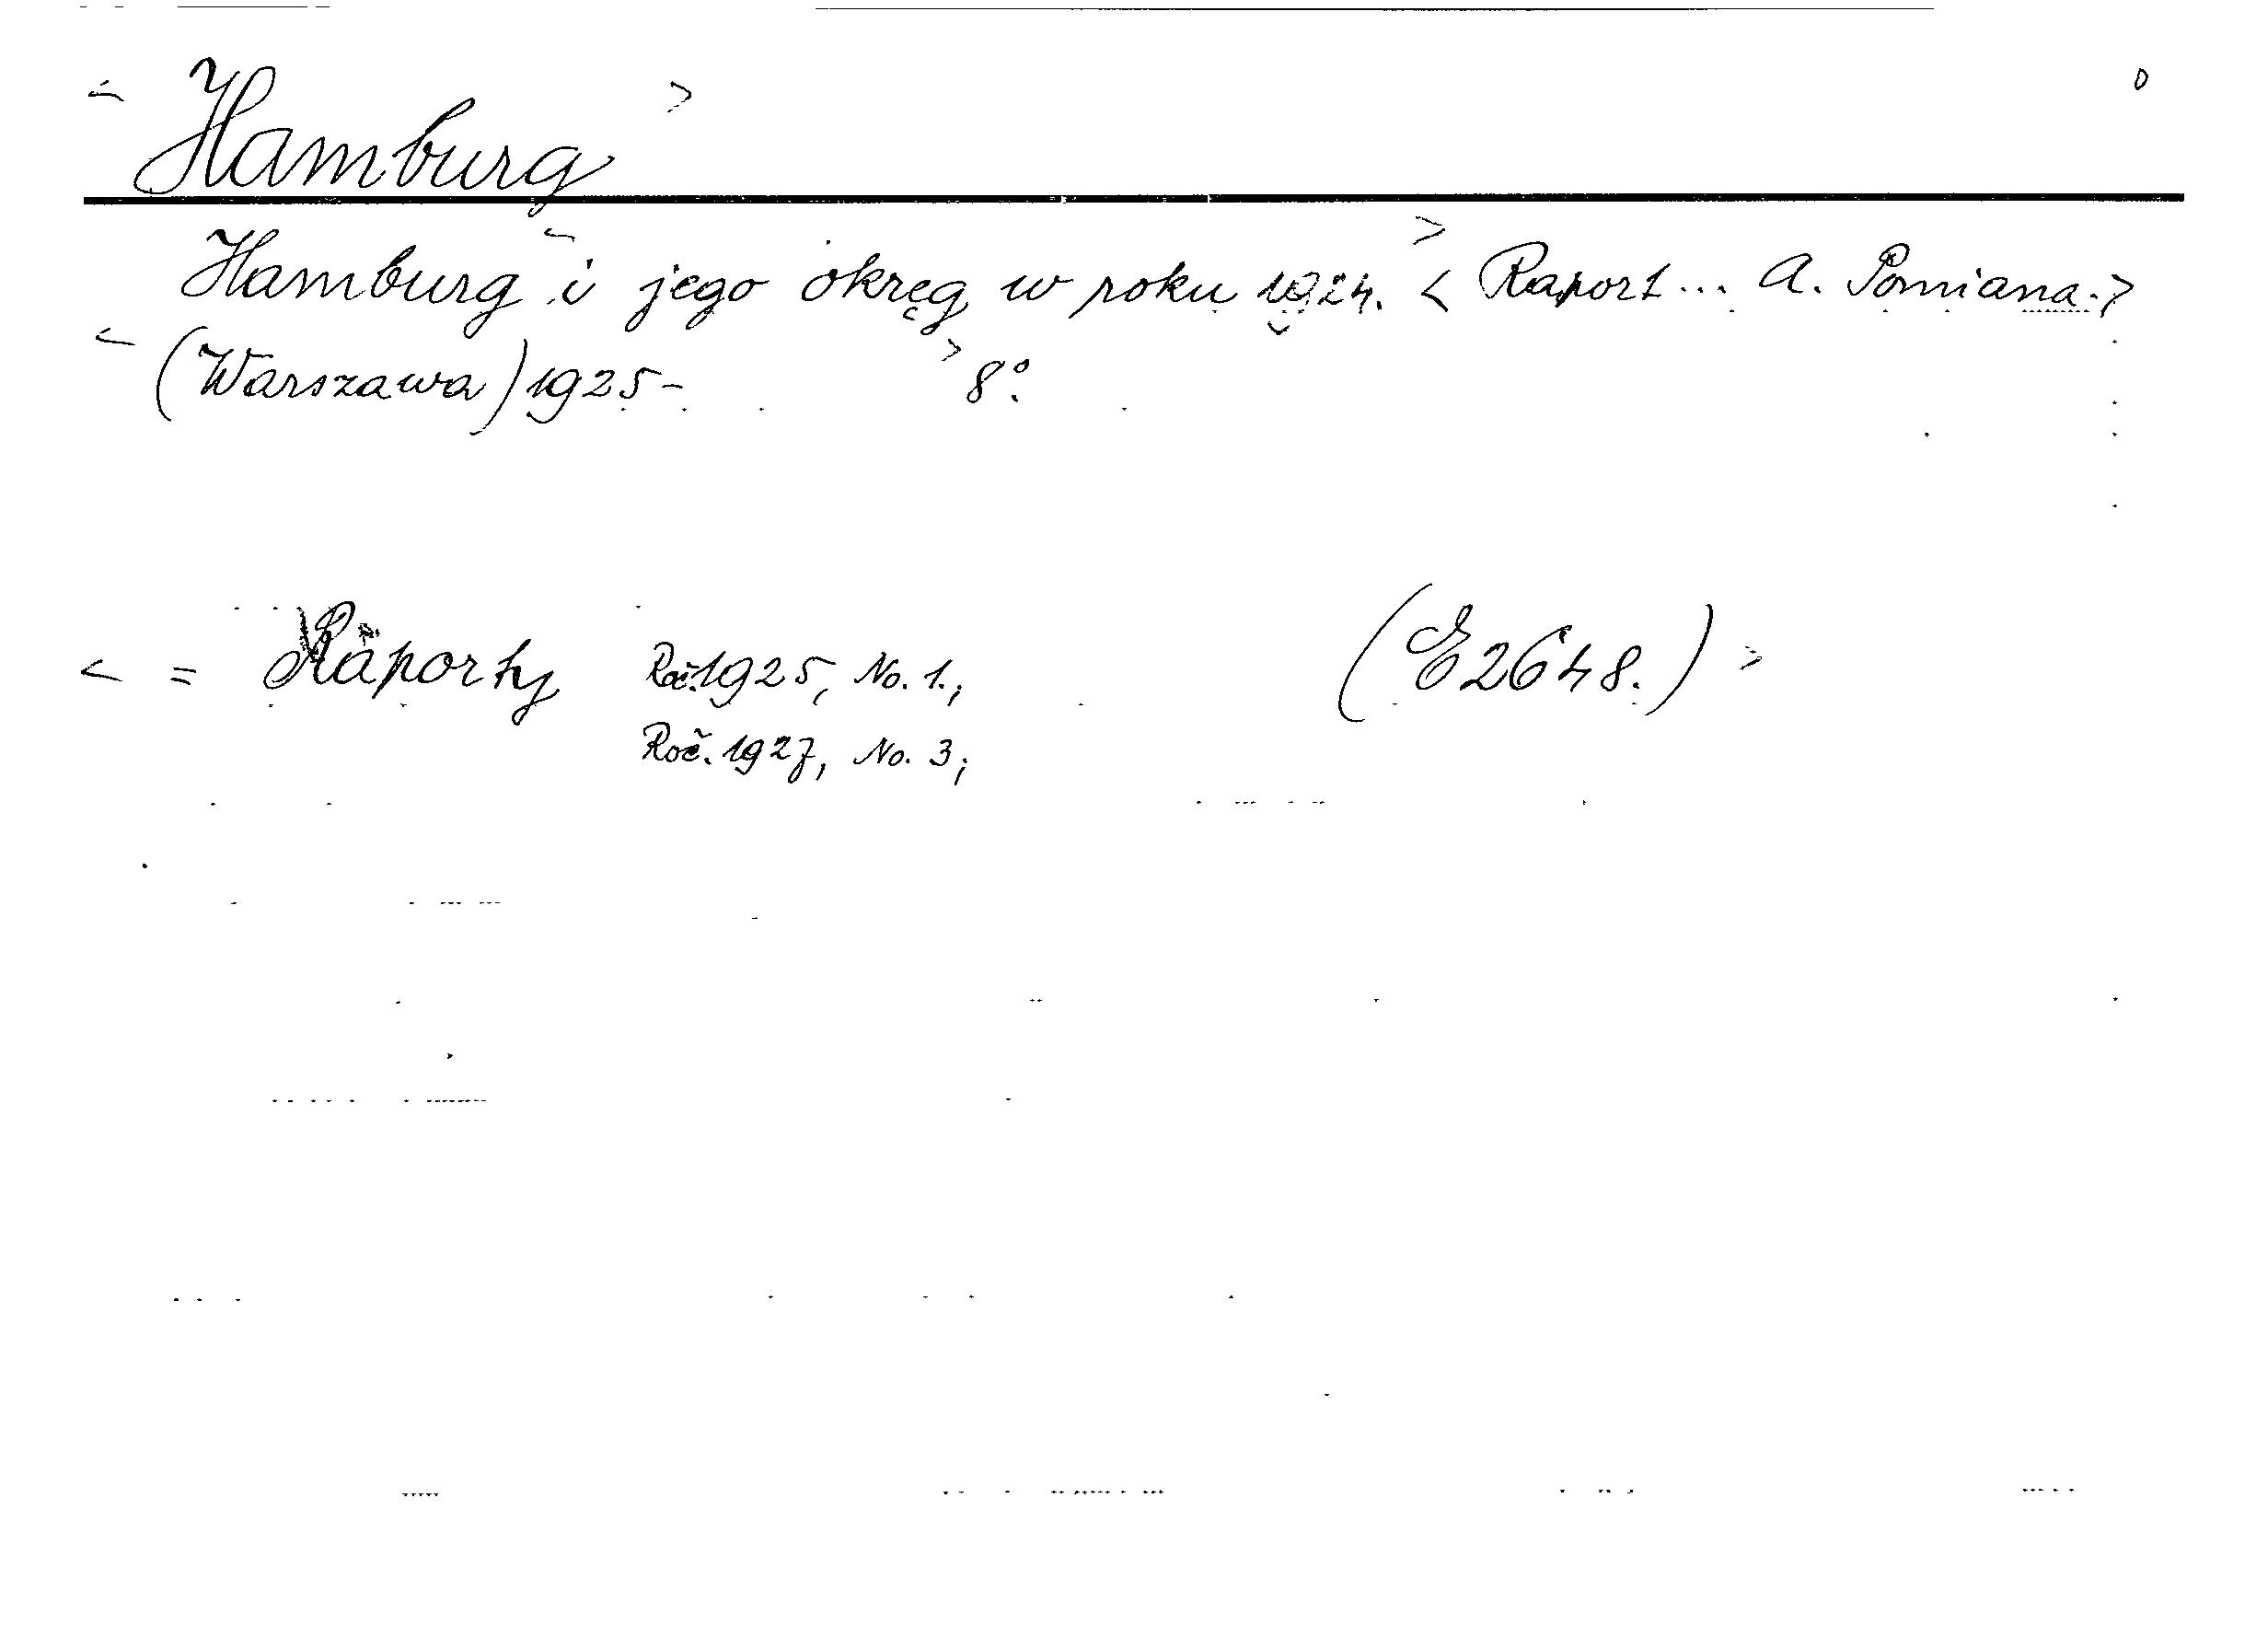 < Hamburg > 0
Hamburg i jego okręg w roku 1924. < Raport ... A. Pomiana. >
< (Warszawa) 1925- > 8°.
< = Raporty Roč. 1925, No. 1.; (E 2648.) >
Roč. 1927, No. 3;